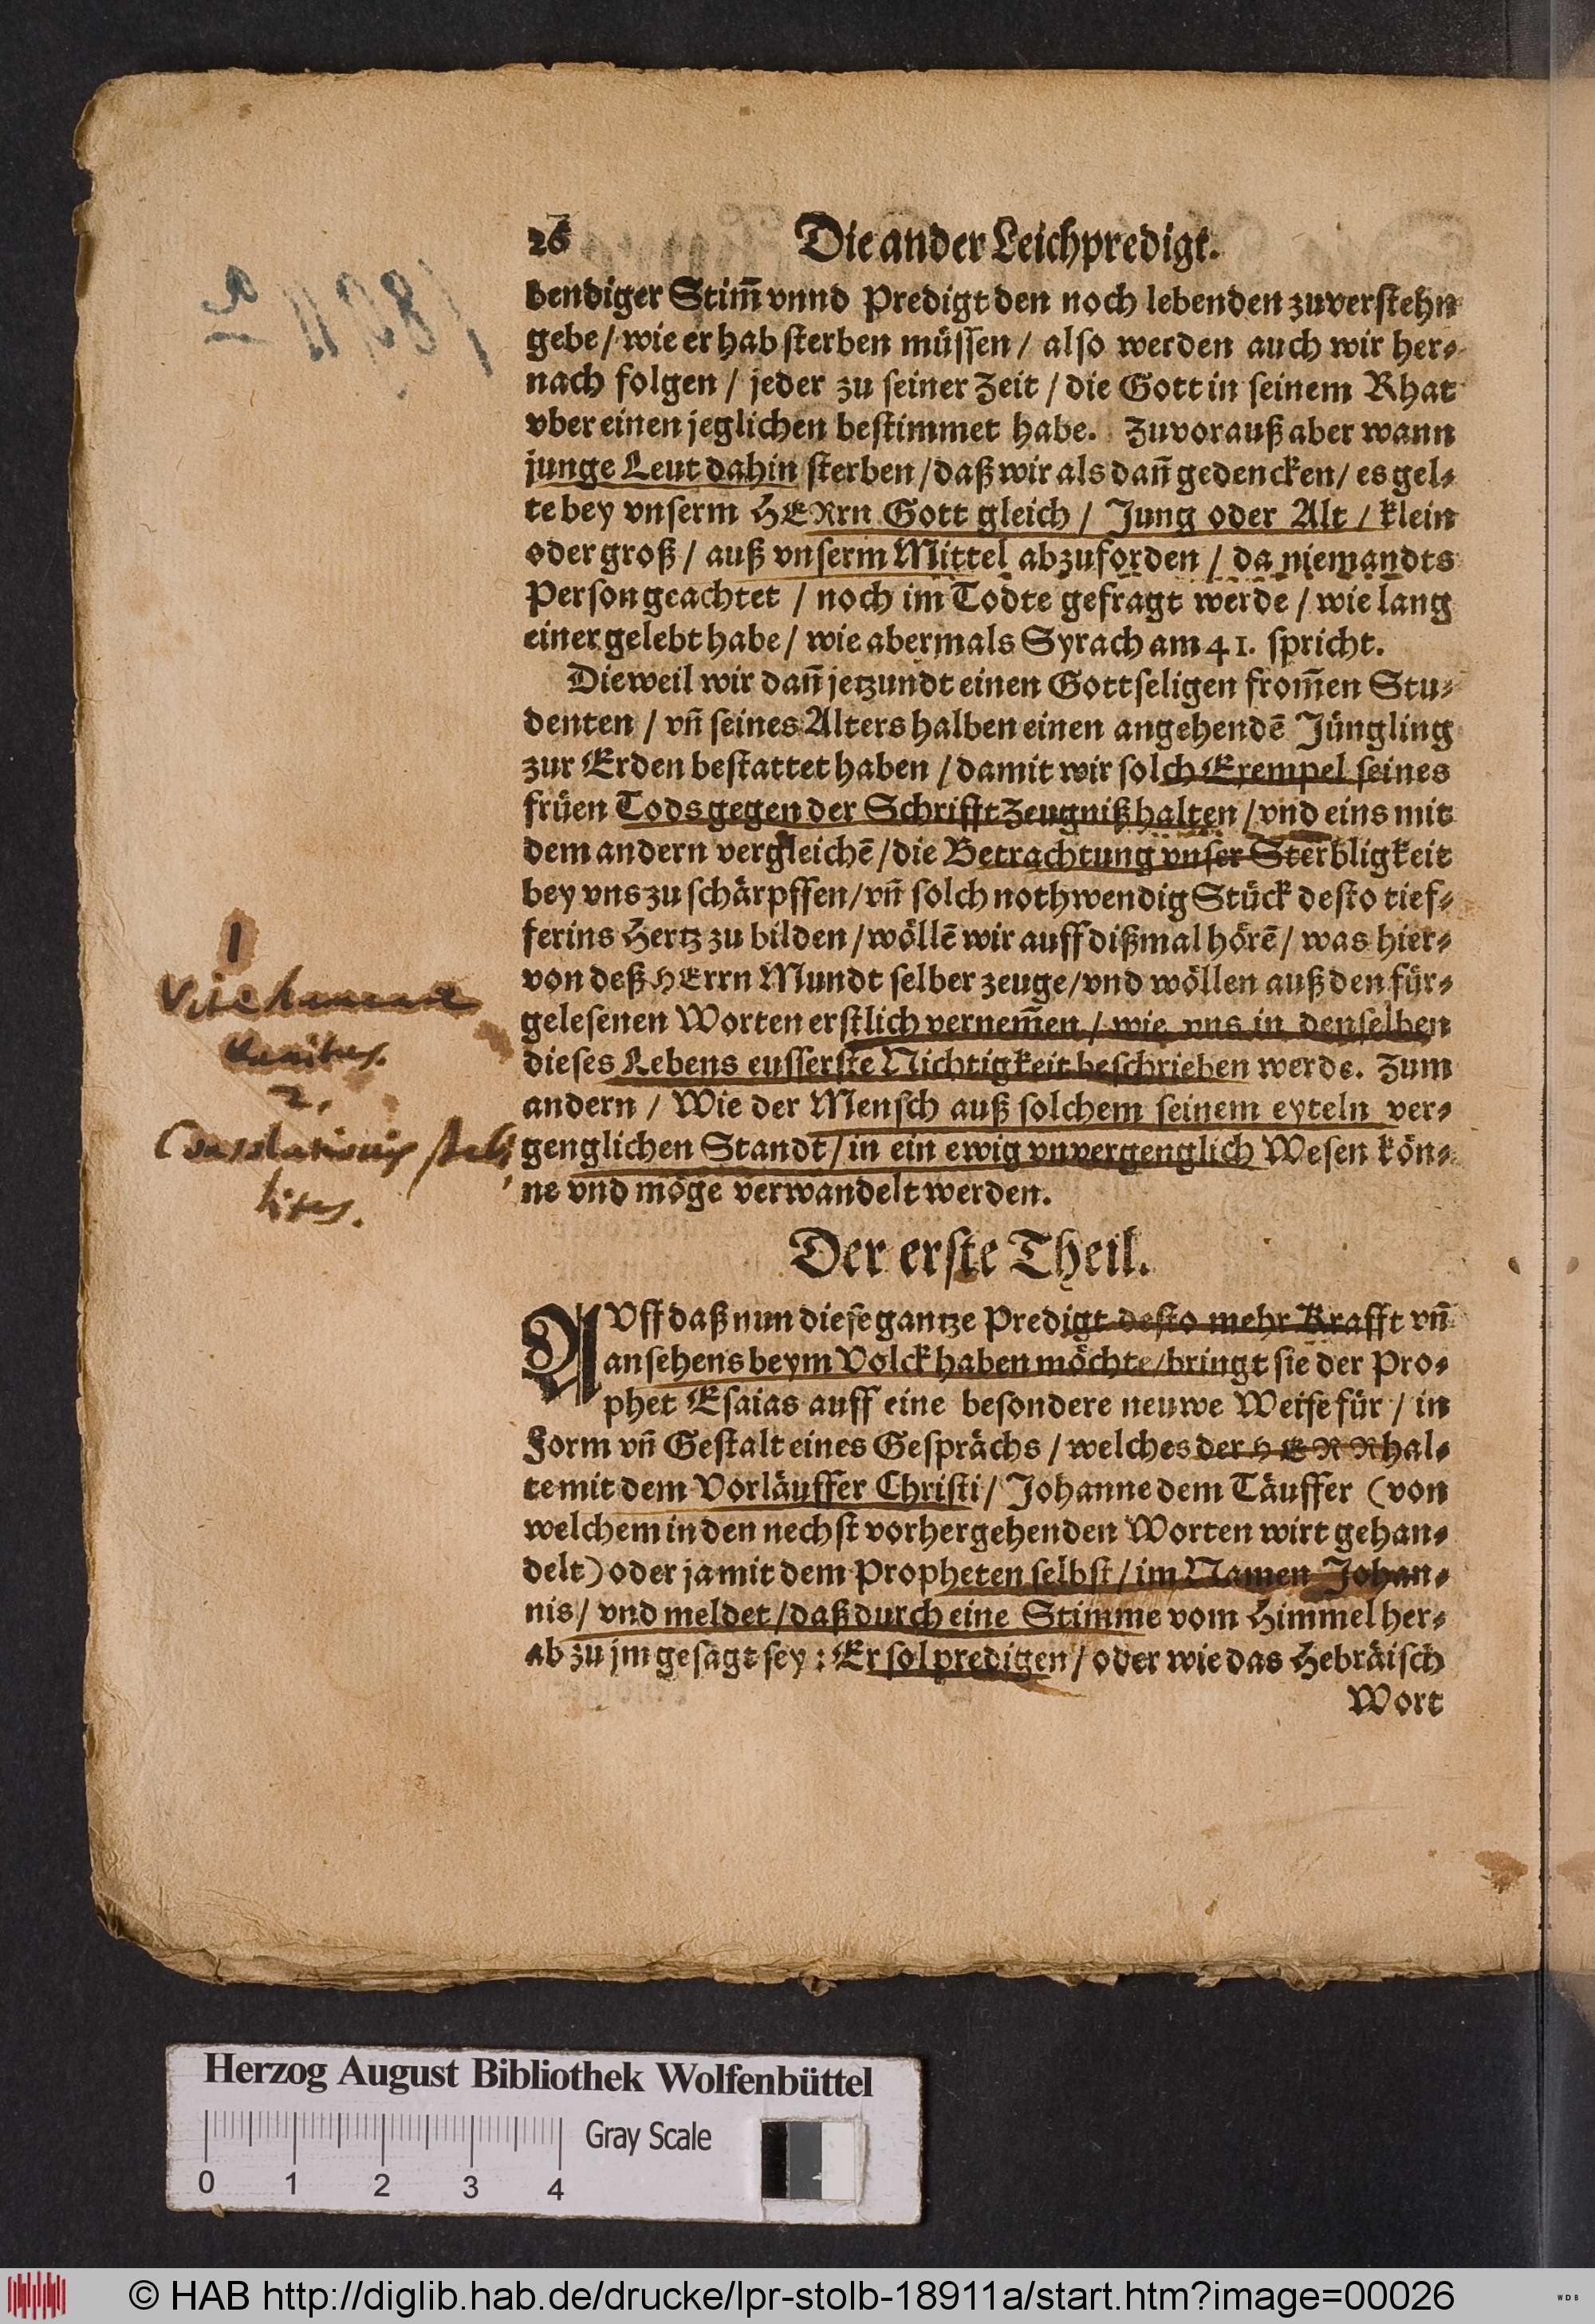 26
Die ander Leichpredigt.
bendiger Stim̄ vnnd Predigt den noch lebenden zuverstehn
gebe / wie er hab sterben müssen / also werden auch wir her⸗
nach folgen / jeder zu seiner Zeit / die Gott in seinem Rhat
vber einen jeglichen bestimmet habe. Zuvorauß aber wann
junge Leut dahin sterben / daß wir als dañ gedencken / es gel⸗
te bey vnserm HERrn Gott gleich / Jung oder Alt / klein
oder groß / auß vnserm Mittel abzuforden / da niemandts
Person geachtet / noch im Todte gefragt werde / wie lang
einer gelebt habe / wie abermals Syrach am 41. spricht.
Dieweil wir dañ jetzundt einen Gottseligen from̄en Stu⸗
denten / vñ seines Alters halben einen angehendē Jüngling
zur Erden bestattet haben / damit wir solch Exempel seines
früen Tods gegen der Schrifft Zeugniß halten / vnd eins mit
dem andern vergleichē / die Betrachtung vnser Sterbligkeit
bey vns zu schärpffen / vñ solch nothwendig Stück desto tief⸗
fer ins Hertz zu bilden / wöllē wir auff dißmal hörē / was hier⸗
von deß HErrn Mundt selber zeuge / vnd wöllen auß den für⸗
gelesenen Worten erstlich vernem̄en / wie vns in denselben
dieses Lebens eusserste Nichtigkeit beschrieben werde. Zum
andern / Wie der Mensch auß solchem seinem eyteln ver⸗
genglichen Standt / in ein ewig vnvergenglich Wesen kön⸗
ne vnd möge verwandelt werden.
1
Vitae humanae
vanitas.
2.
Consolationis
Der erste Theil.
AVff daß nun diese gantze Predigt desto mehr Krafft vñ
ansehens beym Volck haben möchte / bringt sie der Pro⸗
phet Esaias auff eine besondere neuwe Weise für / in
Form vñ Gestalt eines Gesprächs / welches der HERR hal⸗
te mit dem Vorläuffer Christi / Johanne dem Täuffer (von
welchem in den nechst vorhergehenden Worten wirt gehan⸗
delt) oder ja mit dem Propheten selbst / im Namen Johan⸗
nis / vnd meldet / daß durch eine Stimme vom Himmel her⸗
ab zu jm gesagt sey : Er sol predigen / oder wie das Hebräisch
Wort
Herzog August Bibliothek Wolfenbüttel
Gray Scale
0 1 2 3 4
© HAB http://diglib.hab.de/drucke/lpr-stolb-18911a/start.htm?image=00026
WDB